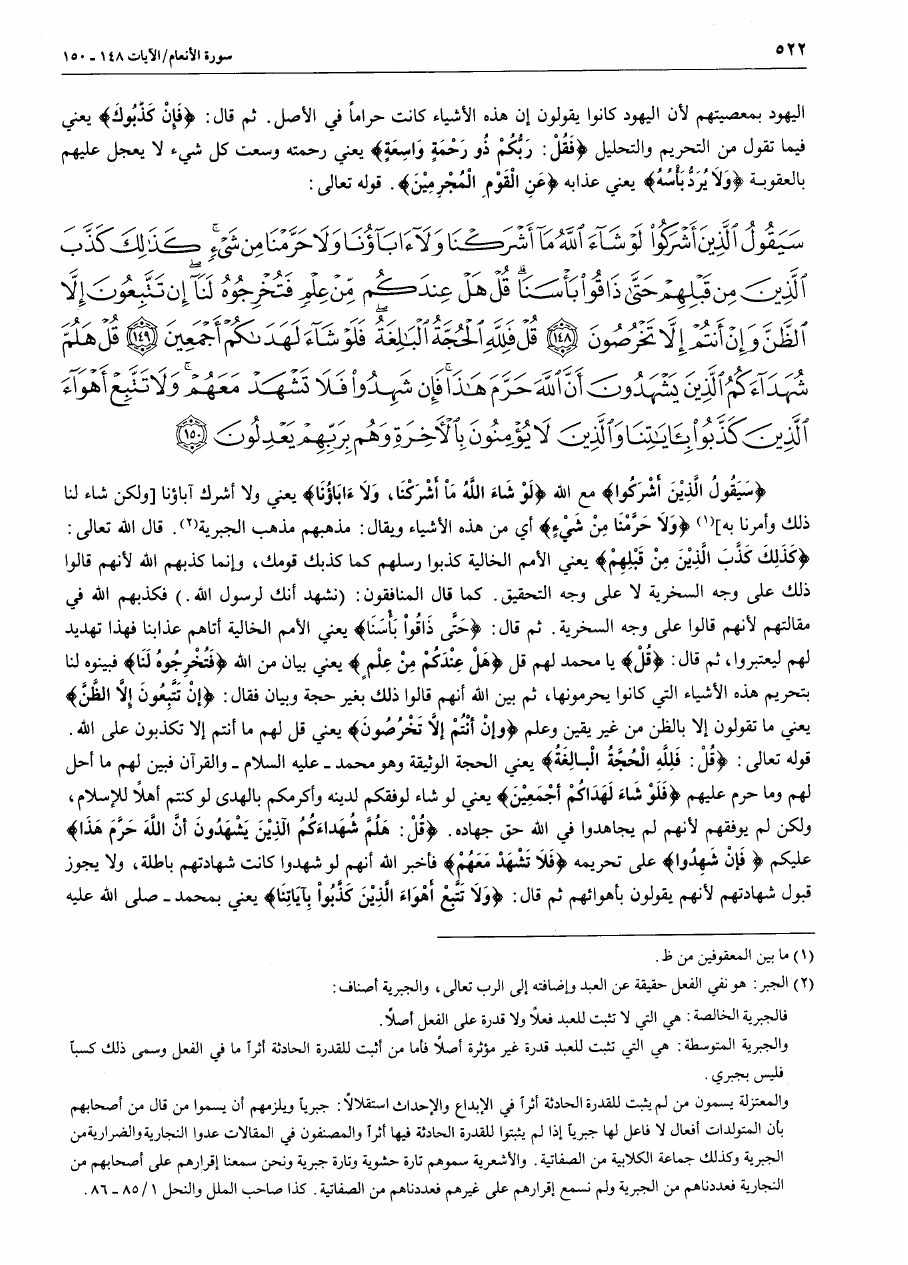 ٥٢٢
سورة الأنعام/الآيات ١٤٨ ـ ١٥٠
اليهود بمعصيتهم لأن اليهود كانوا يقولون إن هذه الأشياء كانت حراماً في الأصل. ثم قال: ﴿فَإِنْ كَذَّبُوكَ﴾ يعني
فيما تقول من التحريم والتحليل ﴿فَقُلْ: رَبُّكُمْ ذُو رَحْمَةٍ وَاسِعَةٍ﴾ يعني رحمته وسعت كل شيء لا يعجل عليهم
بالعقوبة ﴿وَلَا يُرَدُّ بَأْسُهُ﴾ يعني عذابه ﴿عَنِ الْقَوْمِ الْمُجْرِمِيْنَ﴾. قوله تعالى:
سَيَقُولُ ٱلَّذِينَ أَشْرَكُوا۟ لَوْ شَآءَ ٱللَّهُ مَآ أَشْرَكْنَا وَلَآ ءَابَآؤُنَا وَلَا حَرَّمْنَا مِن شَىْءٍ ۚ كَذَٰلِكَ كَذَّبَ
ٱلَّذِينَ مِن قَبْلِهِمْ حَتَّىٰ ذَاقُوا۟ بَأْسَنَا ۗ قُلْ هَلْ عِندَكُم مِّنْ عِلْمٍ فَتُخْرِجُوهُ لَنَآ ۖ إِن تَتَّبِعُونَ إِلَّا
ٱلظَّنَّ وَإِنْ أَنتُمْ إِلَّا تَخْرُصُونَ ﴿١٤٨﴾ قُلْ فَلِلَّهِ ٱلْحُجَّةُ ٱلْبَٰلِغَةُ ۖ فَلَوْ شَآءَ لَهَدَىٰكُمْ أَجْمَعِينَ ﴿١٤٩﴾ قُلْ هَلُمَّ
شُهَدَآءَكُمُ ٱلَّذِينَ يَشْهَدُونَ أَنَّ ٱللَّهَ حَرَّمَ هَٰذَا ۖ فَإِن شَهِدُوا۟ فَلَا تَشْهَدْ مَعَهُمْ ۚ وَلَا تَتَّبِعْ أَهْوَآءَ
ٱلَّذِينَ كَذَّبُوا۟ بِـَٔايَٰتِنَا وَٱلَّذِينَ لَا يُؤْمِنُونَ بِٱلْـَٔاخِرَةِ وَهُم بِرَبِّهِمْ يَعْدِلُونَ ﴿١٥٠﴾
﴿سَيَقُولُ الَّذِيْنَ أَشْرَكُوا﴾ مع الله ﴿لَوْ شَاءَ اللَّهُ مَاْ أَشْرَكْنَا، وَلَاْ ءَابَاؤُنَا﴾ يعني ولا أشرك آباؤنا [ولكن شاء لنا
ذلك وأمرنا به](١) ﴿وَلَا حَرَّمْنَا مِنْ شَيْءٍ﴾ أي من هذه الأشياء ويقال: مذهبهم مذهب الجبرية(٢). قال الله تعالى:
﴿كَذَلِكَ كَذَّبَ الَّذِيْنَ مِنْ قَبْلِهِمْ﴾ يعني الأمم الخالية كذبوا رسلهم كما كذبك قومك، وإنما كذبهم الله لأنهم قالوا
ذلك على وجه السخرية لا على وجه التحقيق. كما قال المنافقون: (نشهد أنك لرسول الله.) فكذبهم الله في
مقالتهم لأنهم قالوا على وجه السخرية. ثم قال: ﴿حَتَّى ذَاقُواْ بَأْسَنَا﴾ يعني الأمم الخالية أتاهم عذابنا فهذا تهديد
لهم ليعتبروا، ثم قال: ﴿قُلْ﴾ يا محمد لهم قل ﴿هَلْ عِنْدَكُمْ مِنْ عِلْمٍ﴾ يعني بيان من الله ﴿فَتُخْرِجُوهُ لَنَا﴾ فبينوه لنا
بتحريم هذه الأشياء التي كانوا يحرمونها، ثم بين الله أنهم قالوا ذلك بغير حجة وبيان فقال: ﴿إِنْ تَتَّبِعُونَ إِلَّا الظَّنَّ﴾
يعني ما تقولون إلا بالظن من غير يقين وعلم ﴿وإِنْ أَنْتُمْ إِلَّا تَخْرُصُونَ﴾ يعني قل لهم ما أنتم إلا تكذبون على الله.
قوله تعالى: ﴿قُلْ: فَلِلَّهِ الْحُجَّةُ الْبَالِغَةُ﴾ يعني الحجة الوثيقة وهو محمد ـ عليه السلام ـ والقرآن فبين لهم ما أحل
لهم وما حرم عليهم ﴿فَلَوْ شَاءَ لَهَدَاكُمْ أَجْمَعِيْنَ﴾ يعني لو شاء لوفقكم لدينه وأكرمكم بالهدى لو كنتم أهلاً للإسلام،
ولكن لم يوفقهم لأنهم لم يجاهدوا في الله حق جهاده. ﴿قُلْ: هَلُمَّ شُهَداءَكُمُ الَّذِيْنَ يَشْهَدُونَ أَنَّ اللَّهَ حَرَّمَ هَذَا﴾
عليكم ﴿ فَإِنْ شَهِدُوا﴾ على تحريمه ﴿فَلَا تَشْهَدْ مَعَهُمْ﴾ فأخبر الله أنهم لو شهدوا كانت شهادتهم باطلة، ولا يجوز
قبول شهادتهم لأنهم يقولون بأهوائهم ثم قال: ﴿وَلَا تَتَّبِعْ أَهْوَاءَ الَّذِيْنَ كَذَّبُواْ بِآيَاتِنَا﴾ يعني بمحمد ـ صلى الله عليه
(١) ما بين المعقوفين من ظ.
(٢) الجبر: هو نفي الفعل حقيقة عن العبد وإضافته إلى الرب تعالى، والجبرية أصناف:
فالجبرية الخالصة: هي التي لا تثبت للعبد فعلاً ولا قدرة على الفعل أصلاً.
والجبرية المتوسطة: هي التي تثبت للعبد قدرة غير مؤثرة أصلاً فأما من أثبت للقدرة الحادثة أثراً ما في الفعل وسمى ذلك كسباً
فليس بجبري.
والمعتزلة يسمون من لم يثبت للقدرة الحادثة أثراً في الإبداع والإحداث استقلالاً: جبرياً ويلزمهم أن يسموا من قال من أصحابهم
بأن المتولدات أفعال لا فاعل لها جبرياً إذا لم يثبتوا للقدرة الحادثة فيها أثراً والمصنفون في المقالات عدوا النجارية والضرارية من
الجبرية وكذلك جماعة الكلابية من الصفاتية. والأشعرية سموهم تارة حشوية وتارة جبرية ونحن سمعنا إقرارهم على أصحابهم من
النجارية فعددناهم من الجبرية ولم نسمع إقرارهم على غيرهم فعددناهم من الصفاتية. كذا صاحب الملل والنحل ١/ ٨٥ ـ ٨٦.